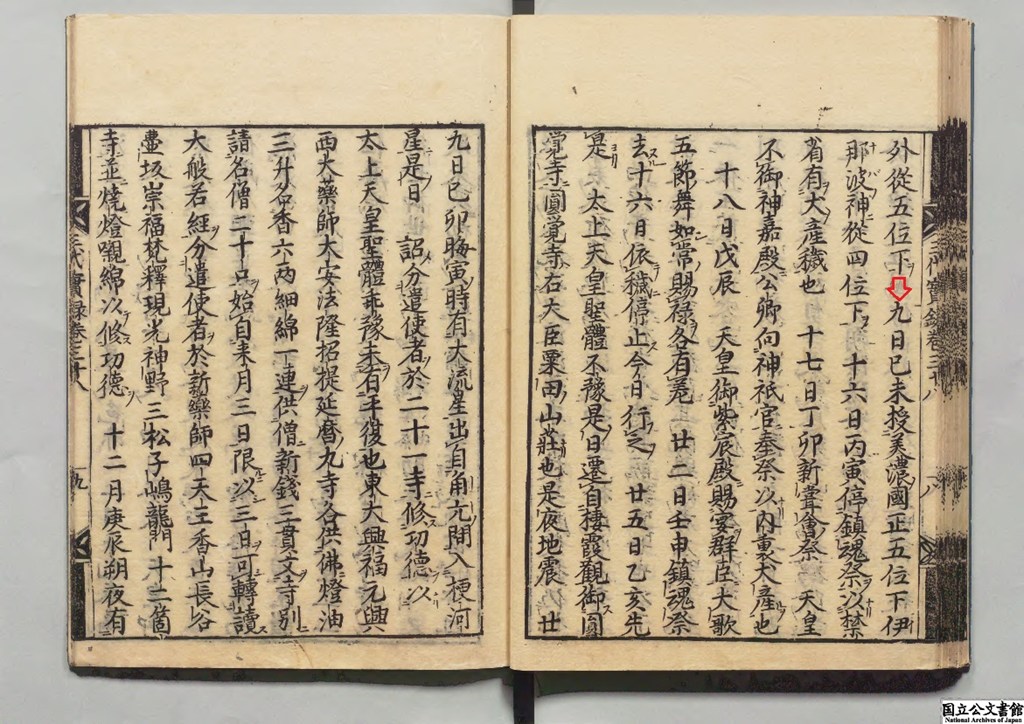 外從五位下九日已未授美濃國正五位下伊
那波神從四位下十六日丙寅停鎮魂祭以禁
省有大産穢也十七日丁卯新甞會祭天皇
不御神嘉殿公卿向神祇官奉祭以内裏犬産也
十八日戊辰天皇御紫宸殿賜宴群臣大歌
五節舞如常賜祿各有差廿二日壬申鎮魂祭
去十六日依穢停止今日行之廿五日乙亥先
是太上天皇聖體不豫是日遷自棲霞觀御圓
覚寺圓覚寺右大臣粟田山莊也是夜地震廿
三代實録卷三十八
八
九日已卯晦寅時有大流星出自角亢間入梗河
星是日詔分遣使者於二十一寺修功德以
太上天皇聖體乖豫未有平復也東大興福元興
西大藥師大安法隆招提延曆九寺各供佛燈油
三升名香六兩細綿一連供僧新錢三貫文寺別
請名僧二十口始自来月三日限以三日可轉讀
大般若經分遣使者於新藥師四天王香山長谷
壷坂崇福梵釋現光神野三松子嶋龍門十二箇
寺並燒燈嚫綿以修功德十二月庚辰朔夜有
三代實録卷三十八
九
国立公文書館
National Archives of Japan